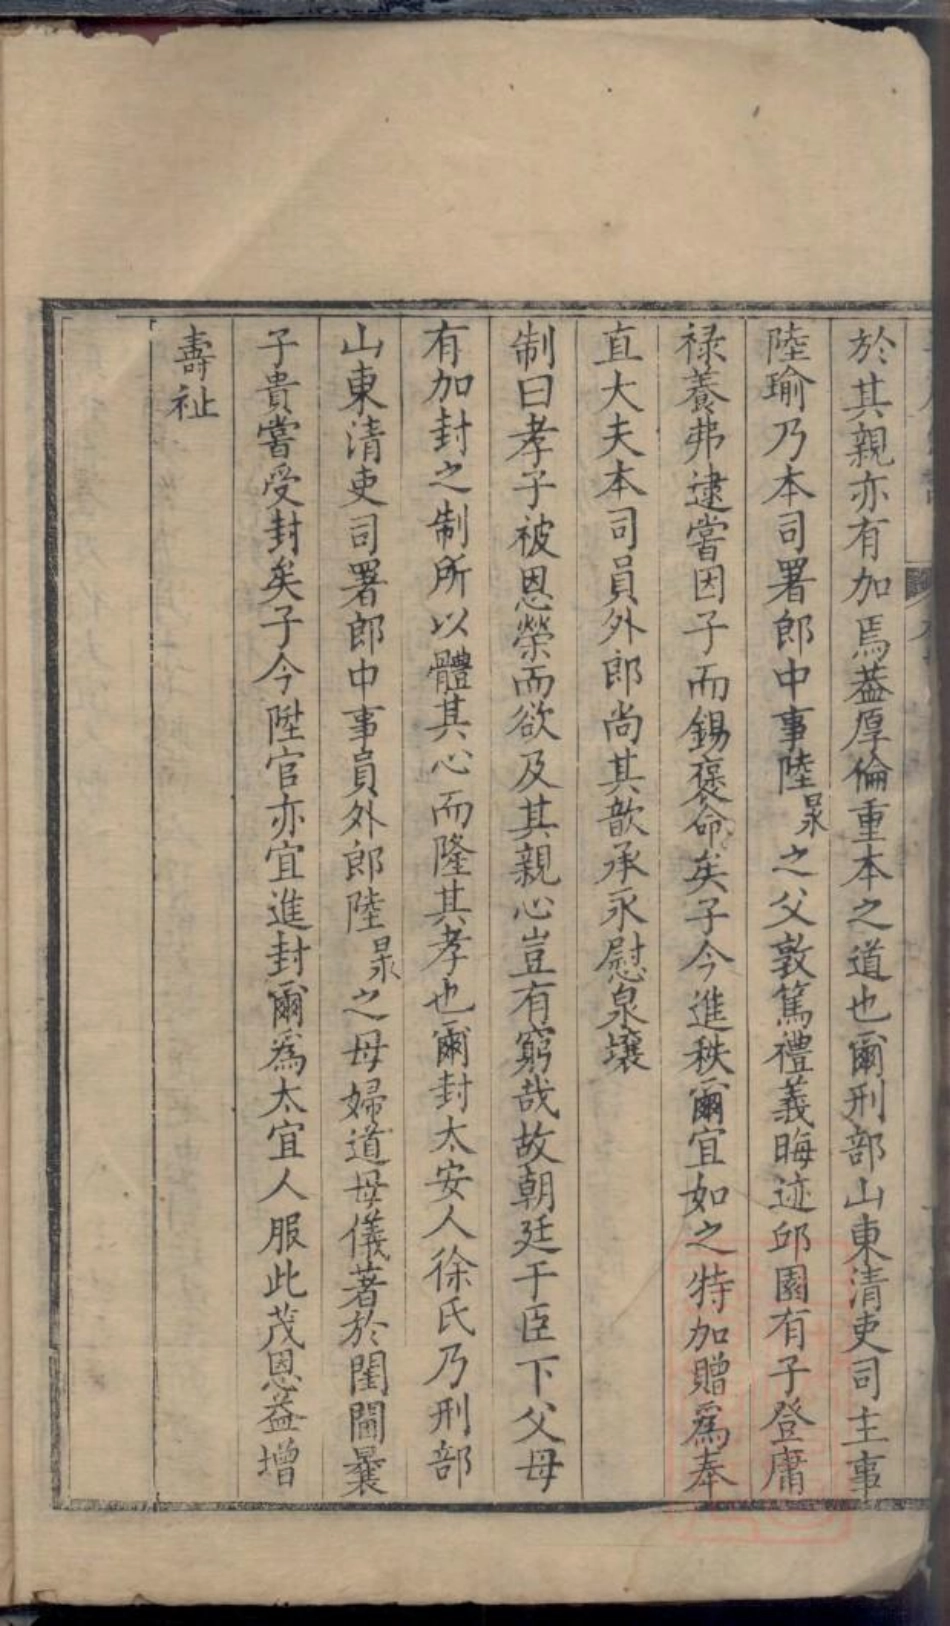 於其親亦有加焉葢厚倫重本之道也爾刑部山東清吏司主事
陸瑜乃本司署郎中事陸杲之父敦篤禮義晦迹邱園有子登庸
祿養弗逮嘗因子而錫褒命矣子今進秩爾宜如之特加贈爲奉
直大夫本司員外郎尚其歆承永慰泉壤
制曰孝子被恩榮而欲及其親心豈有窮哉故朝廷于臣下父母
有加封之制所以體其心而隆其孝也爾封太安人徐氏乃刑部
山東清吏司署郎中事員外郎陸杲之母婦道母儀著於閨閫曩
子貴嘗受封矣子今陞官亦宜進封爾為太宜人服此茂恩益增
壽祉